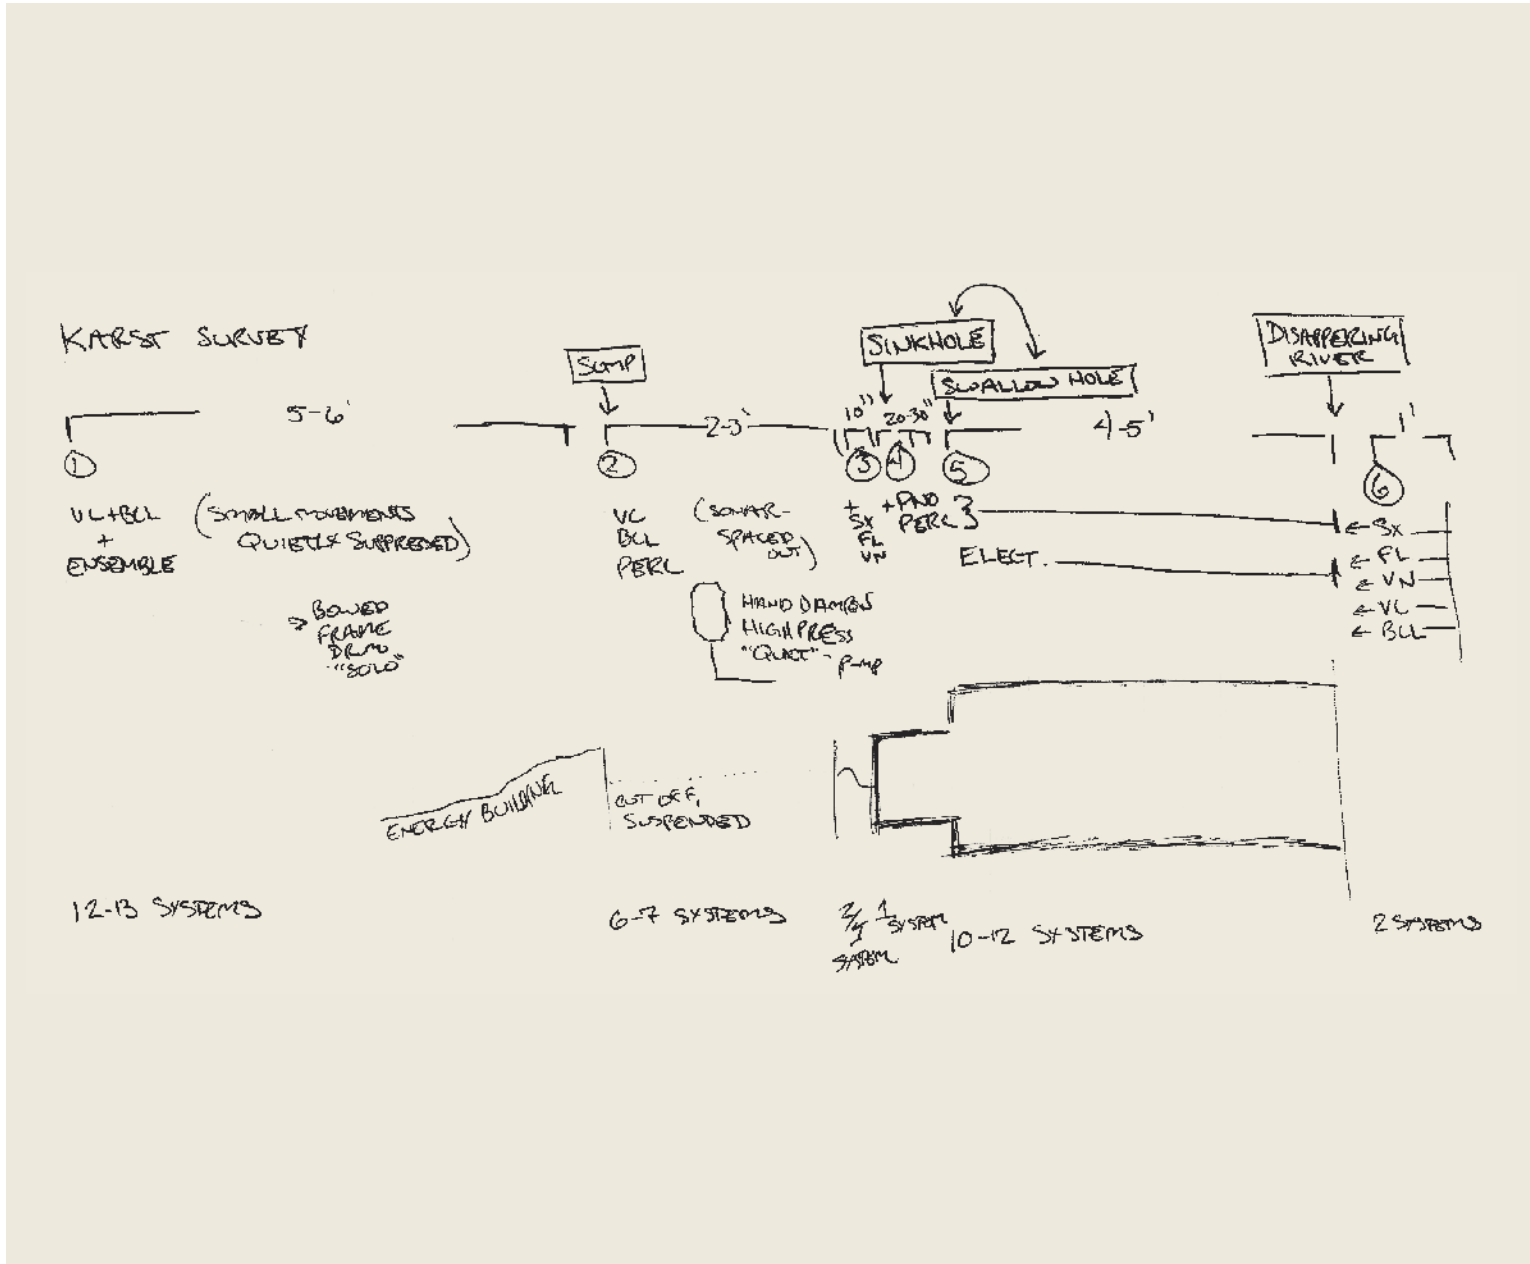 KARST SURVEY
SUMP
SINKHOLE
SWALLOW HOLE
DISAPPERING
RIVER
5-6'
2-3'
10"
20-30"
4-5'
1'
1
2
3
4
5
6
VC+BCL
+
ENSEMBLE
(SMALL MOVEMENTS
QUIETLY SUPPRESED)
→ BOWED
FRAME
DRUM
"SOLO"
VC
BCL
PERC
(SONAR-
SPACED
OUT)
HAND DAMPEN
HIGH PRESS
"QUIET"-
+
SX
FL
VN
+PNO
PERC }
ELECT.
← SX
← FL
← VN
← VC
← BCL
ENERGY BUILDING
CUT OFF,
SUSPENDED
12-13 SYSTEMS
6-7 SYSTEMS
SYSTEM
1
SYSTEM
10-12 SYSTEMS
2 SYSTEMS